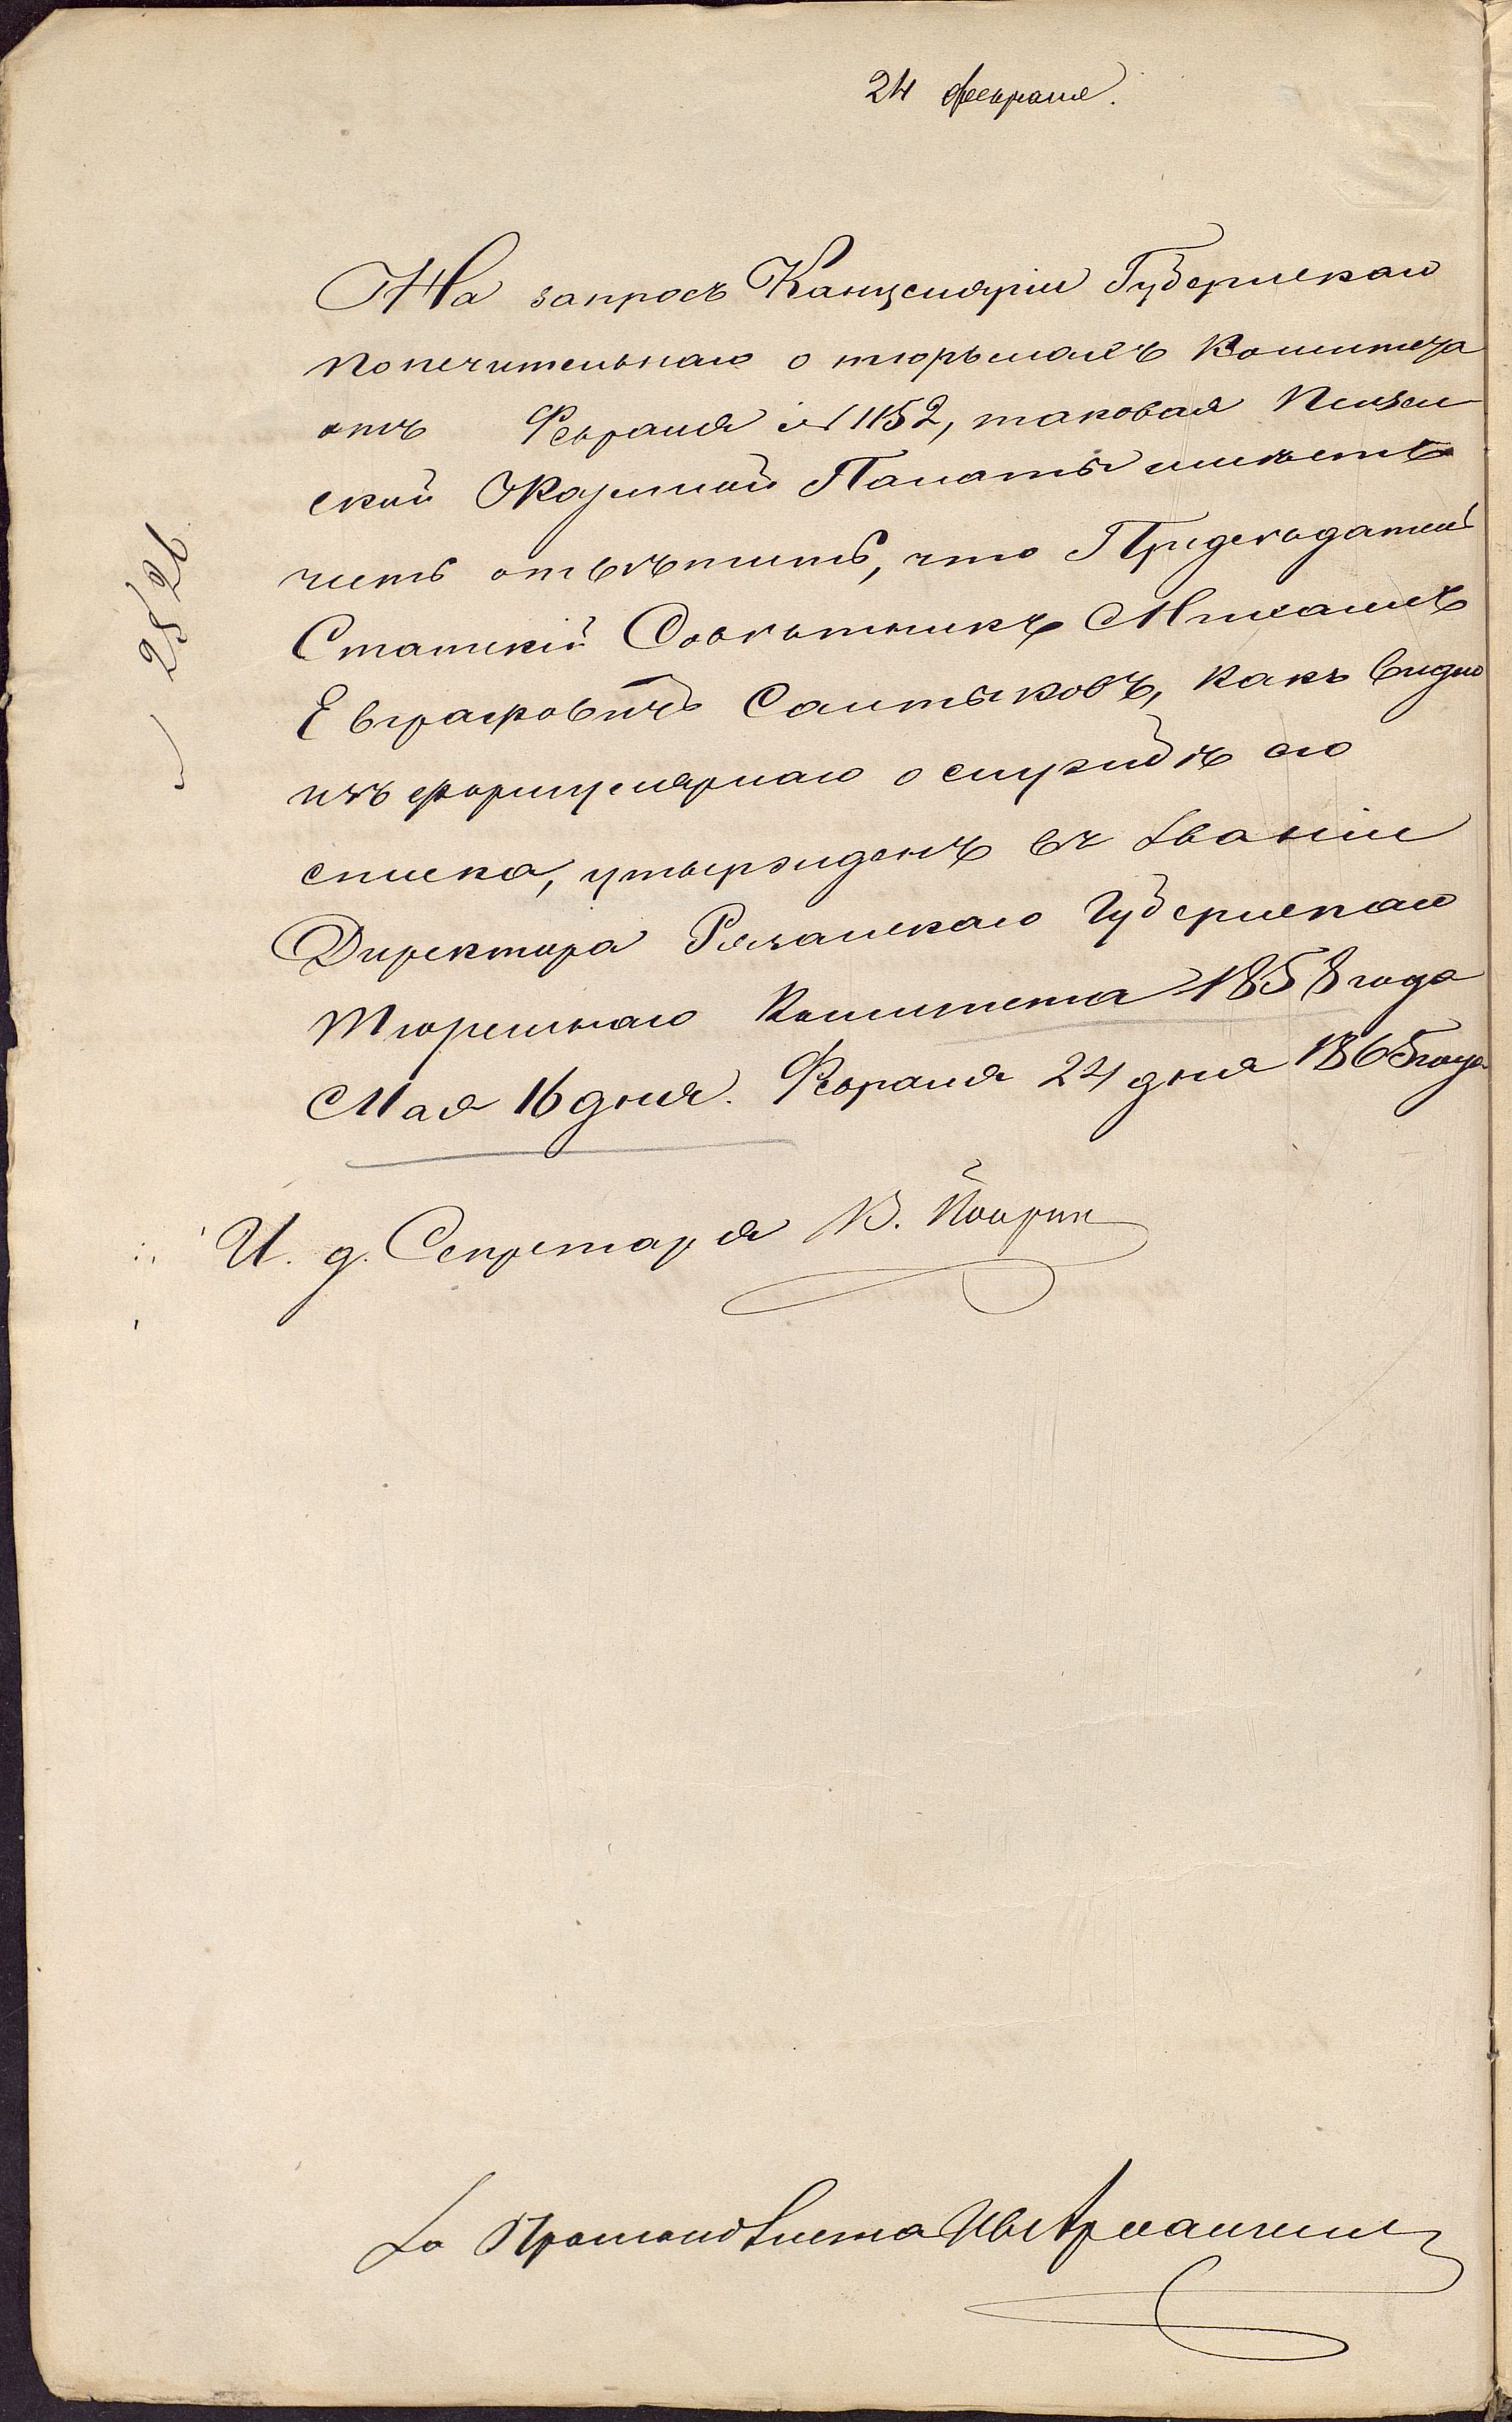 24 февраля.
На запросъ Канцеляріи Губернскаго
попечительнаго о тюрьмахъ комитета
отъ Февраля № 1152, таковая Пензен
ской Казенной Палаты имѣетъ
честь отвѣтить, что Предсѣдатель
Статскій Совѣтникъ Михаилъ
Евграфовичъ Салтыковъ, какъ видно
изъ формулярнаго о службѣ его
списка, утвержденъ въ званіи
Директора Рязанскаго Губернскаго
Тюремнаго Комитета 1858 года
Мая 16 дня. Февраля 24 дня 1865 года
И. д. Секретаря В.
За Протоколиста
2526